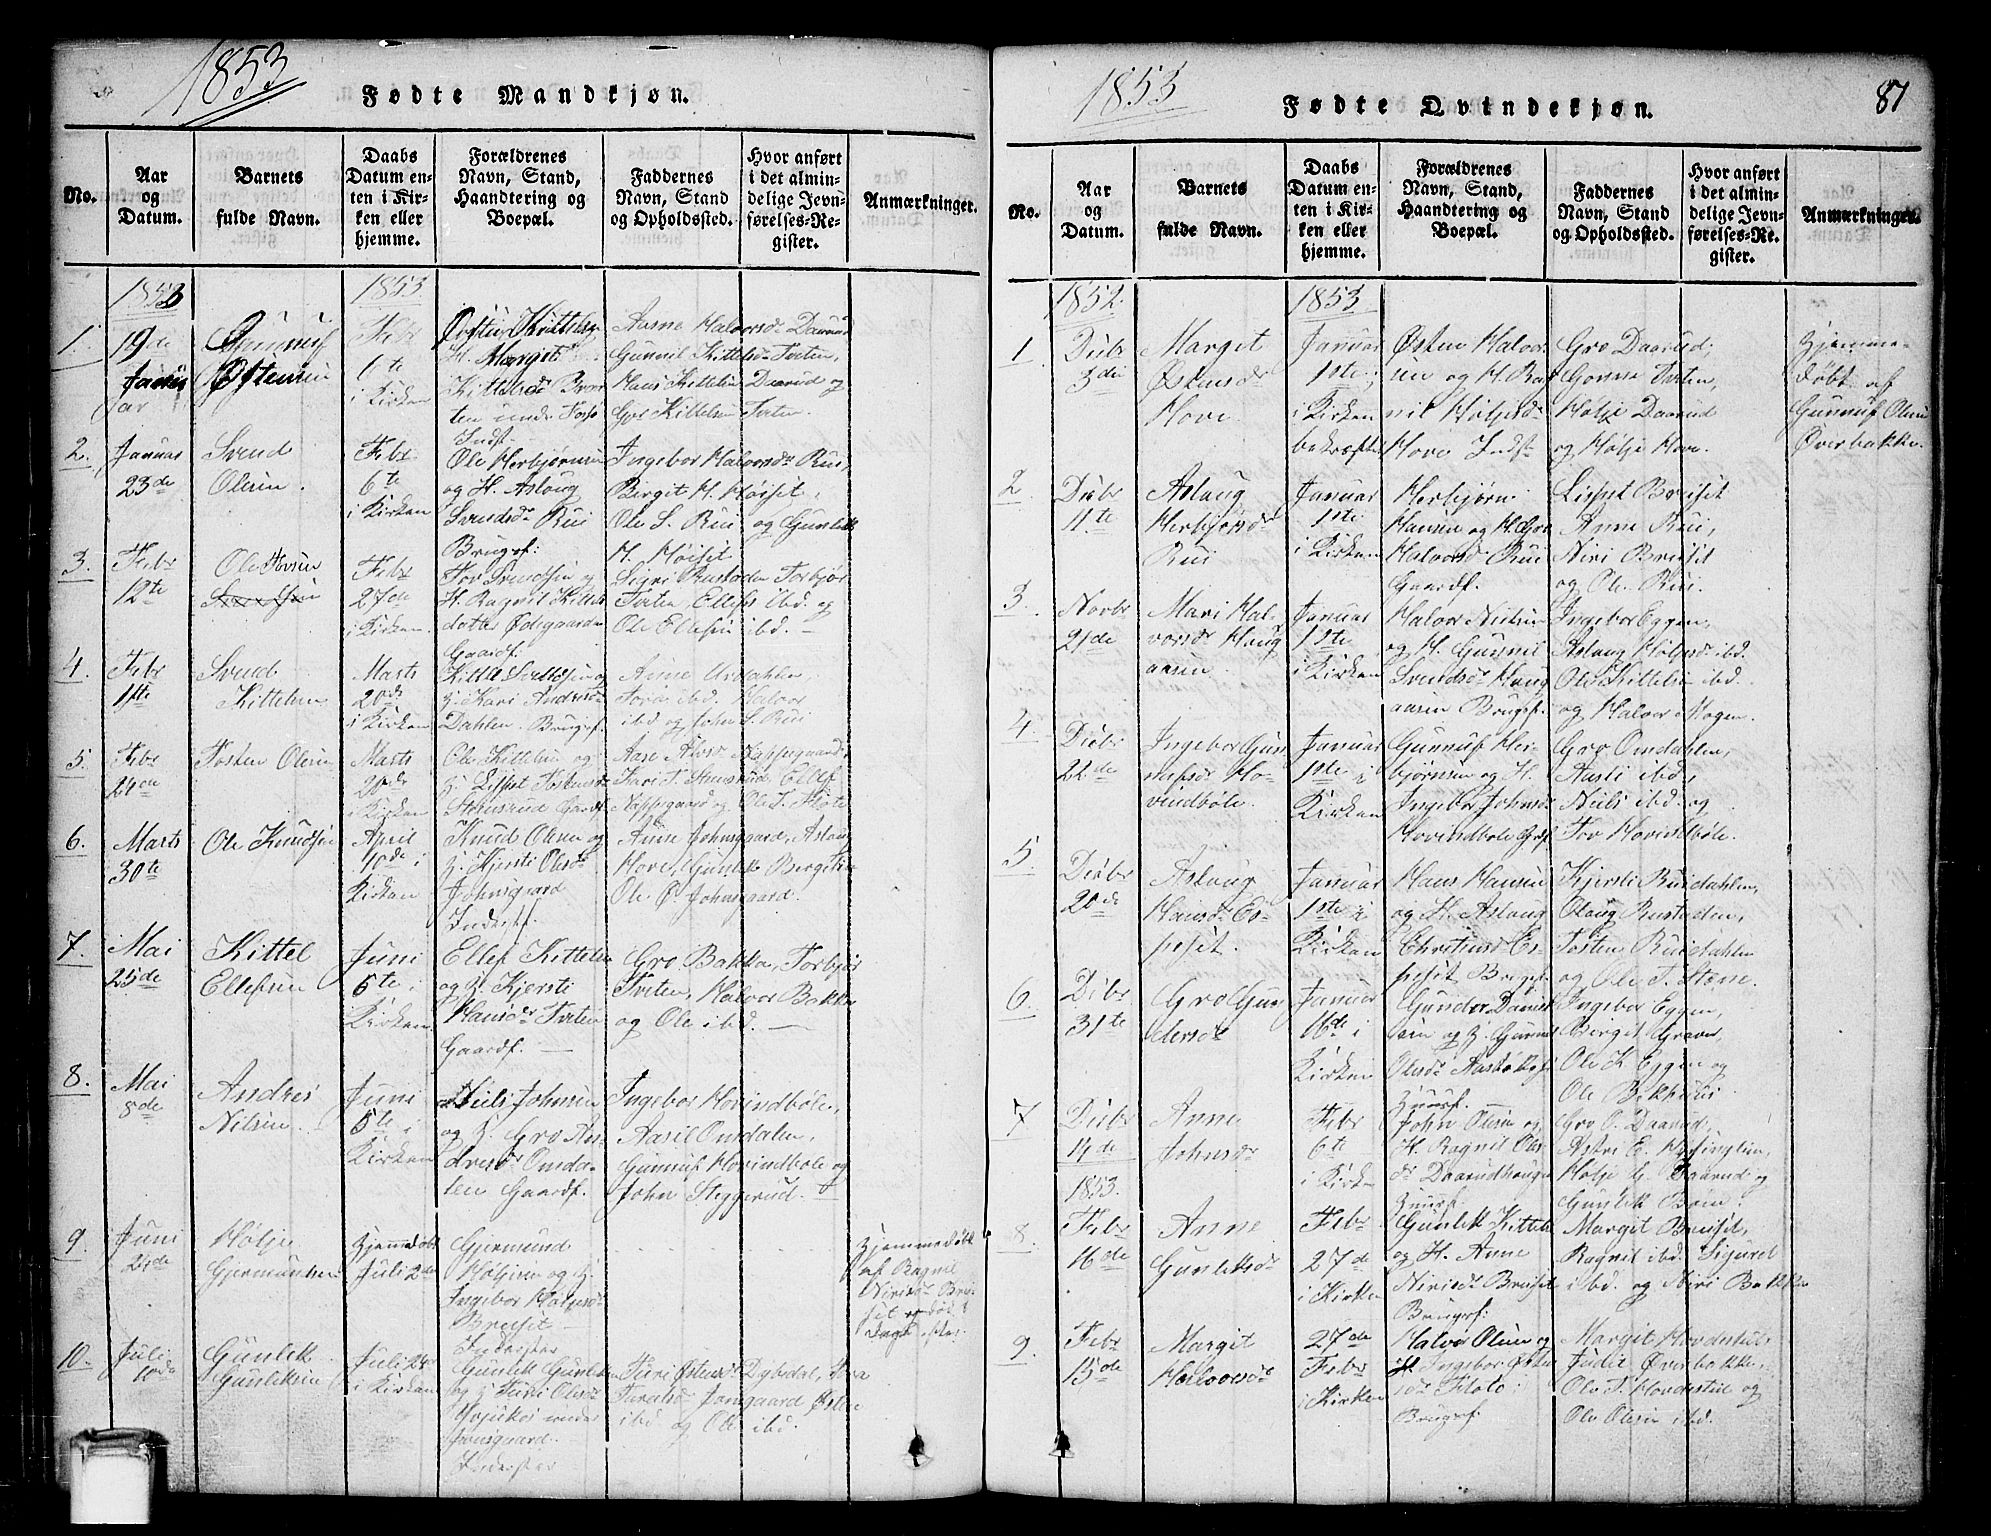 1853
Fødte Mandkjøn.
No.
Aar
og
Datum.
Barnets
fulde Navn.
Daabs
Datum en-
ten i Kir-
ken eller
hjemme.
Forældrenes
Navn, Stand,
Haandtering og
Boepæl.
Faddernes
Navn, Stand
og Opholdssted.
Hvor anført
i det almin-
delige Jevn-
førelses-Re-
gister.
Anmærkninger.
1853
1853
1.
19de
Januar
Gunnuf
Østensen
Febr
6te
i Kirken
Østen Kittelsen
H. Margit
Kittelsdr
ten under
Indst.
Aasne Halvorsdr Daarud
Gunnil Kittelsdr Tveten,
Hans Kittelsen Daarud og
Gro Kittelsen Tveten.
2.
Januar
23de
Svend
Olesen.
Febr
6te
i Kirken
Ole Herbjørnsen
og H. Aslaug
Svendsdr Rui
Brugsf:
Ingebor Halvorsdr Rui,
Birgit H. Høiset,
Ole S. Rui og Gunlek
H. Høiset
3.
Febr
12te
Ole Tovsen
Febr
27de
i Kirken.
Tov Svendsen og
H. Ragnil Kittels
dotter Ødegaarden
Gaardf.
Sigri Rustaden Torbjør
Tveten, Ellef ibd. og
Ole Ellefsen ibd. —
4.
Febr
11te
Svend
Kittelsen
Marts
20de
i Kirken
Kittel Svendsen og
H. Kari Andersdr
Dahlen. Brugsf.
Anne Urdahlen,
Tora ibd. Halvor
ibd og John S. Rui
5.
Febr
24de
Tosten Olesen
Marts
20de
i Kirken
Ole Kittelsen og
H. Lispet Tostensdr
Stensrud Gaardf.
Aase Nappegaard,
Tari T. Stensrud, Ellef
Nappegaard og Ole T.
6.
Marts
30te
Ole Knudsen
April
10de i
Kirken
Knud Olsen og
H. Kjersti Olesdr
Johnsgaard
Inderst.
Anne Johnsgaard, Aslaug
Hove, Gunlek Bergstien
Ole Ø Johnsgaard.
7.
Mai
25de
Kittel
Ellefsen
Juni
5te i
Kirken
Ellef Kittelsen
og H. Kjersti
Hansdr Tveten
Gaardf. —
Gro Bakka, Torbjør
Tveten, Halvor Bakka
og Ole ibd. —
8.
Mai
5de
Andres
Nilsen
Juni
5te i
Kirken
Niels Johnsen
og H. Gro An-
dresdr Omda-
len Gaardf.
Ingebor Hovindbøle,
Aasil Omdalen,
Gunnuf Hovindbøle og
John Steggerud. —
9.
Juni
24de
Hølje
Gjermundsen
Hjemmedøbt
Juli 2de
Gjermund
Høljesen og H.
Ingebor Høljesdr
Breiset —
Inderster
Hjemmedøbt
af Ragnil
Nirisdr Brei-
set død 8
Dage efter.
10.
Juli
10de
Gunlek
Gunleksen
Juli 24de
i Kirken
Gunlek Gunleksen
og H. Turi Olesdr
under
Jonsgaard.
Inderster
Turi Østensdr Dybedal, Tora
Tarålsdr Jonsgaard Østen
ibd og Ole ibd.
1853
Fødte Qvindekjøn.
87
No.
Aar
og
Datum.
Barnets
fulde Navn.
Daabs
Datum en-
ten i Kir-
ken eller
hjemme.
Forældrenes
Navn, Stand,
Haandtering og
Boepæl.
Faddernes
Navn, Stand
og Opholdssted.
Hvor anført
i det almin-
delige Jevn-
førelses-Re-
gister.
Anmærkninger.
1852.
1853
1
Dcbr
3die
Margit
Østensdr
Hove
Januar
1ste
i Kirken
bekræftet
Østen Halvor
sen og H. Rag
nil Høljesdr
Hove Indst
Gro Daarud,
Gonne Tveten,
Hølje Daarud
og Hølje Hove.
Hjemme-
døbt af
Gunnuf Olesen
Øverbakke.
2
Dcbr
11te
Aslaug
Herbjørnsdr
Rui
Januar
1ste
i Kirken
Herbjørn
Hansen og H. Gro
Halvorsdr Rui
Gaardf.
Lispet Breiset
Anne Rui,
Niri Breiset
og Ole Rui.
3.
Novbr
21de
Mari Hal-
vorsdr Haug
aasen
Januar
1ste
i Kirken
Halvor Nielsen
og H. Gunnil
Svendsdr Haug
aasen Brugsf.
Ingebor Eggen,
Aslaug Høljesdr ibd.
Ole Kittelsen ibd.
og Halvor Mogen.
4
Dcbr
22de
Ingebor Gun
nufsdr Ho-
vindbøle
Januar
1ste i
Kirken
Gunnuf Her-
bjørnsen og H.
Ingebor Johnsdr
Hovindbøle Grf
Gro Omdahlen,
Aasli ibd,
Niels ibd. og
Tov Hovindbøle.
5
Dcbr
20de
Aslaug
Hansdr Es-
peset.
Januar
1ste i
Kirken
Hans Hansen
og H. Aslaug
Christensdr Es-
peset Brugsf.
Kjersti Ruidahlen,
Olaug Rustaden,
Tosten Ruidahlen
og Ole T. Stene.
6
Dcbr
31te
Gro Gun
dersdr
Januar
16de i
Kirken
Gunder Daniel
sen og H. Gunnil
Olesdr
Huusf.
Ingebor Eggen,
Birget Graver,
Ole K. Eggen og
Ole Bekhus
7
Dcbr
14de
Anne
Johnsdr
Febr
6te
i Kirken
John Olesen og
H. Ragnil Oles
dr Daarudhaugen
Huusf.
Gro O. Daarud,
Astri E.
Hølje G. Daarud og
Gunlek Bøen.
1853.
8
Febr
16de
Anne
Gunleksdr
Febr
27de
i Kirken
Gunlek Kittels
og H. Anne
Nirisdr Breiset
Brugsf.
Margit Breiset,
Ragnil ibd. Sigurd
ibd. og Niri Bakka
9
Febr
15de
Margit
Halvorsdr
27de
Febr
i Kirken
Halvor Olsen og
H. Ingebor Østen
sdr Floto
Brugsf.
Margit Hovdestul,
Judit Øverbakke,
Ole T. Hovdestul og
Ole Olesen ibd.